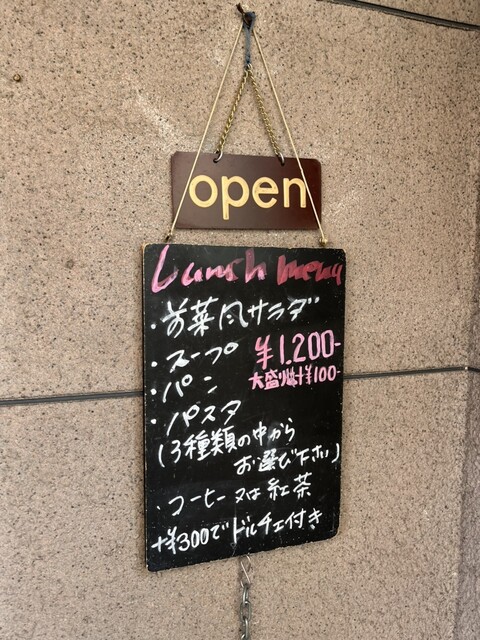 open
Lunch menu
・前菜風サラダ
・スープ
¥1,200-
・パン
大盛りは+¥100-
・パスタ
(3種類の中から
お選び下さい)
・コーヒー又は紅茶
+¥300でドルチェ付き